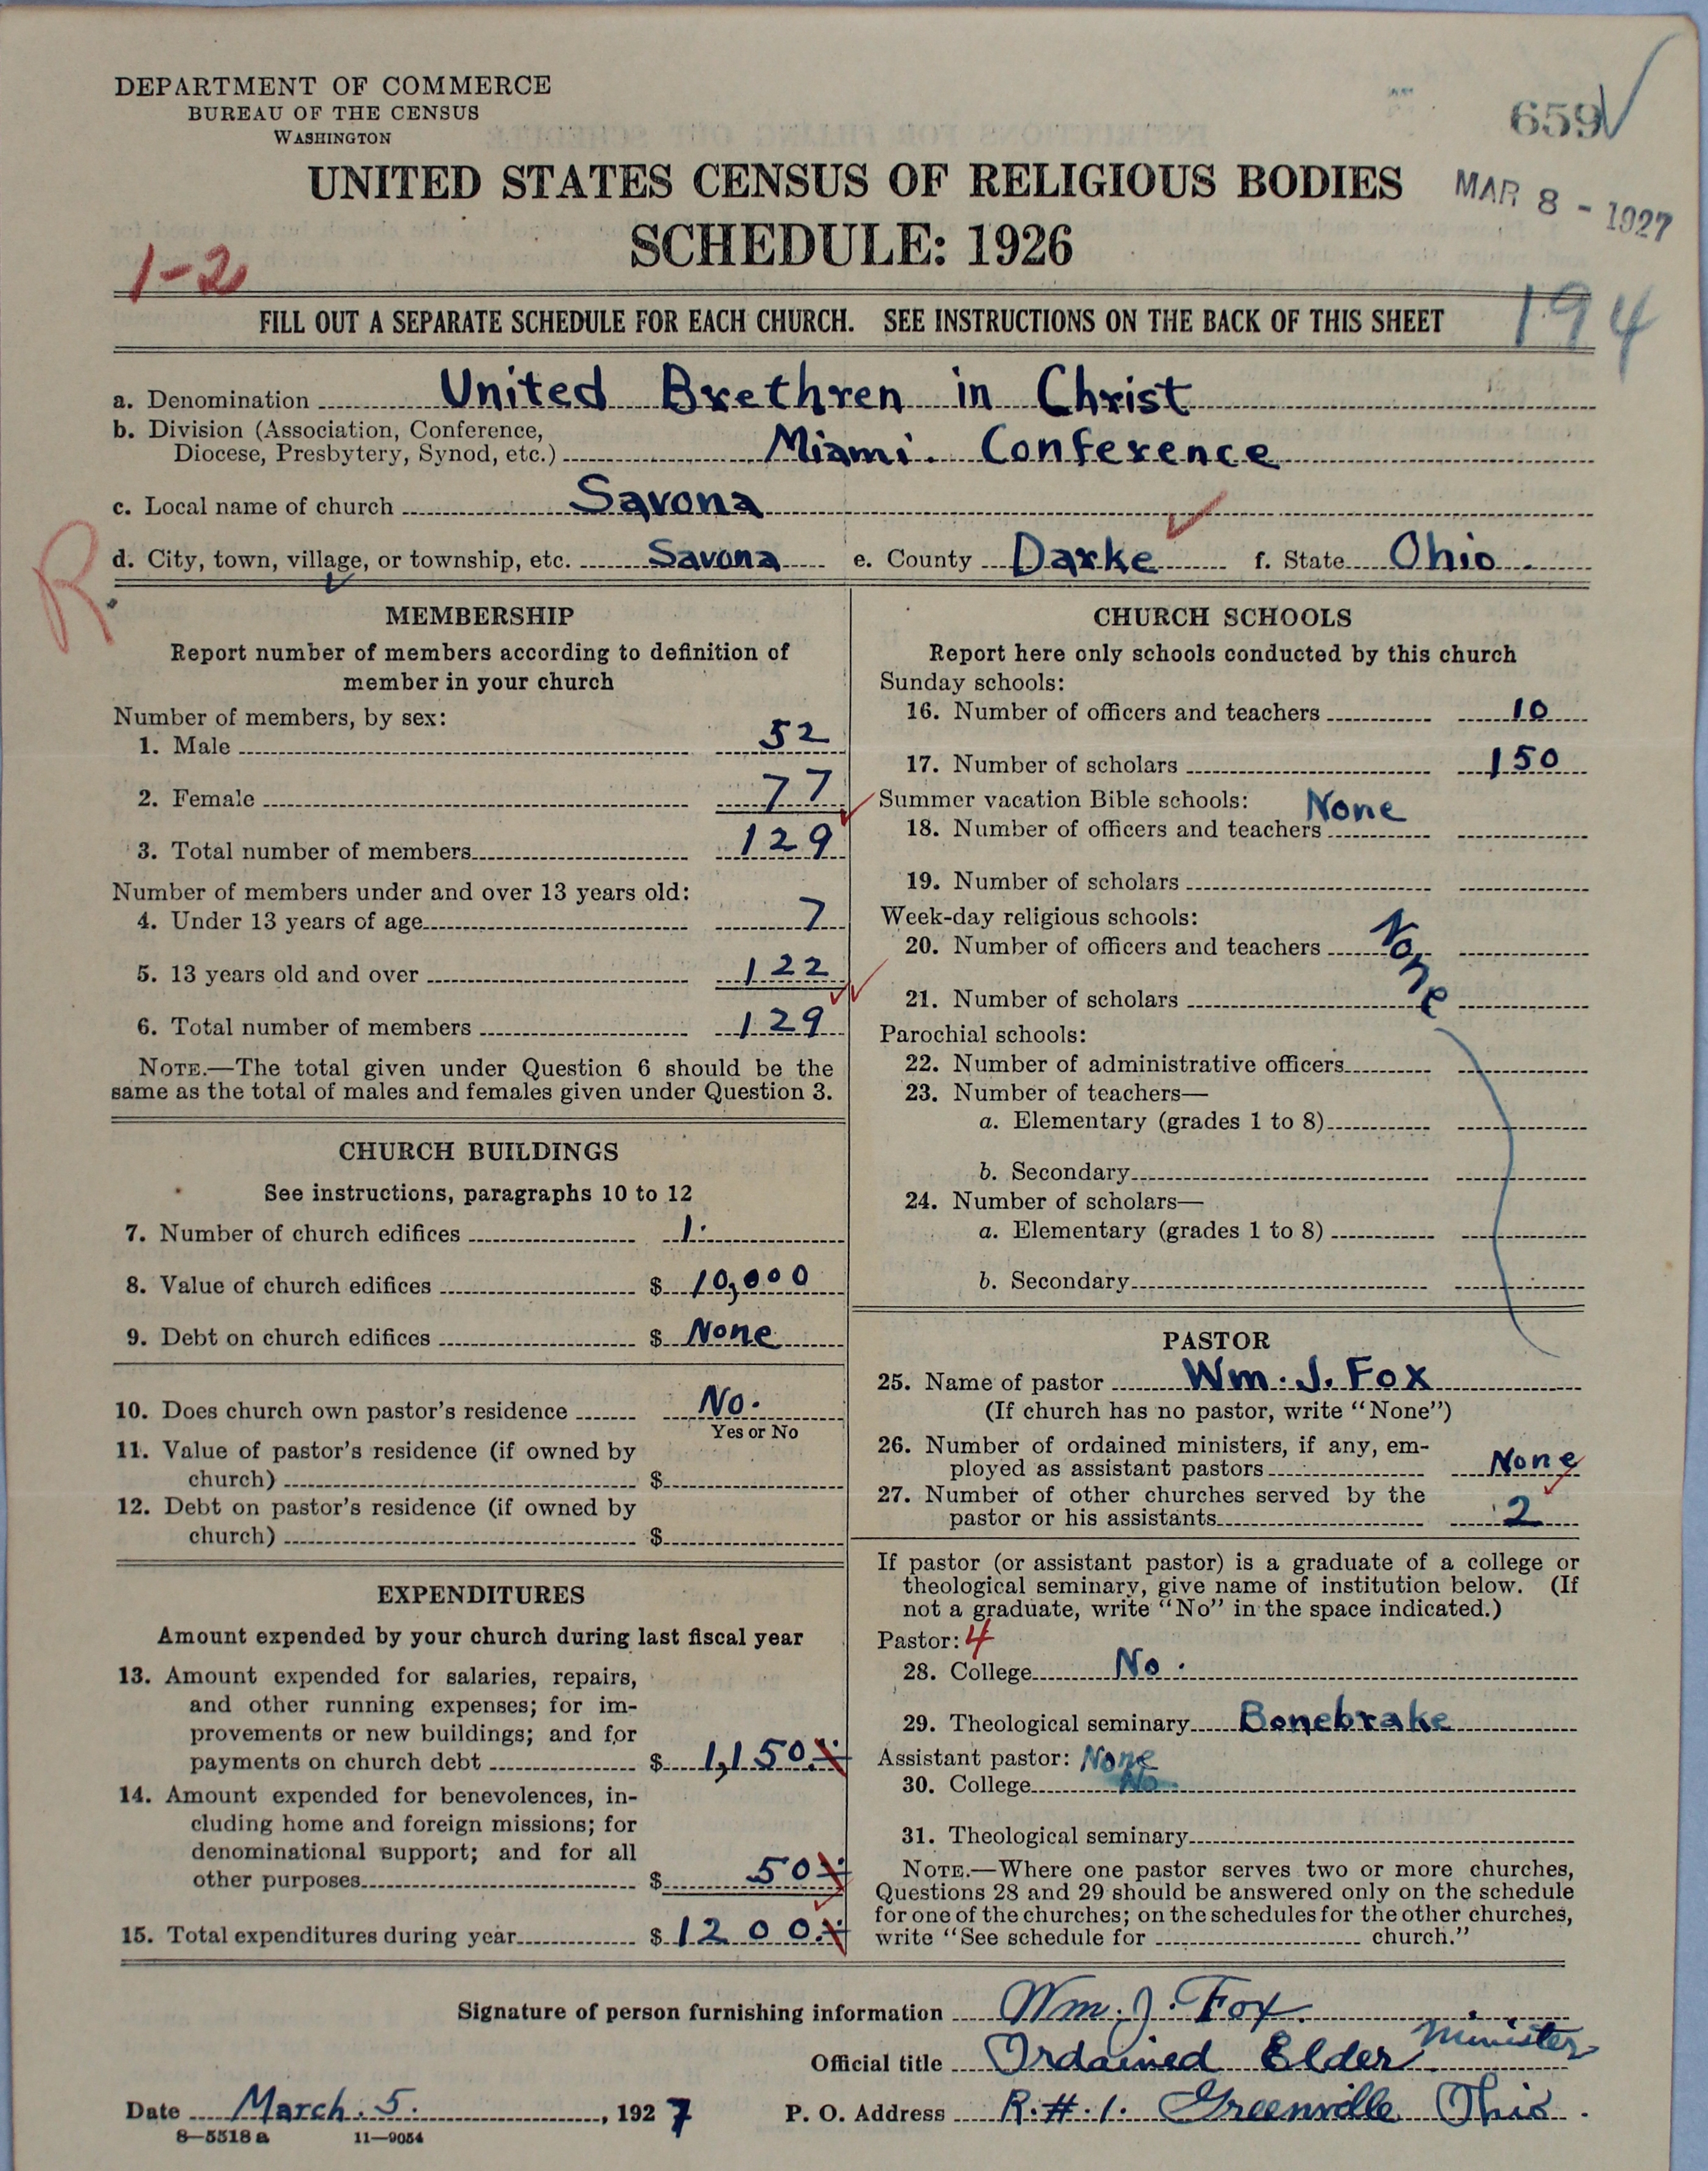 DEPARTMENT OF COMMERCE
BUREAU OF THE CENSUS
WASHINGTON
659
UNITED STATES CENSUS OF RELIGIOUS BODIES
MAR 8 - 1927
SCHEDULE: 1926
1-2
FILL OUT A SEPARATE SCHEDULE FOR EACH CHURCH. SEE INSTRUCTIONS ON THE BACK OF THIS SHEET
194
a. Denomination United Brethren in Christ
b. Division (Association, Conference,
Diocese, Presbytery, Synod, etc.) Miami. Conference
c. Local name of church Savona
R
d. City, town, village, or township, etc. Savona e. County Darke f. State Ohio.
MEMBERSHIP
Report number of members according to definition of
member in your church
Number of members, by sex:
1. Male 52
2. Female 77
3. Total number of members 129
Number of members under and over 13 years old:
4. Under 13 years of age 7
5. 13 years old and over 122
6. Total number of members 129
NOTE.—The total given under Question 6 should be the
same as the total of males and females given under Question 3.
CHURCH BUILDINGS
See instructions, paragraphs 10 to 12
7. Number of church edifices 1.
8. Value of church edifices $ 10,000
9. Debt on church edifices $ None
10. Does church own pastor's residence No.
Yes or No
11. Value of pastor's residence (if owned by
church) $
12. Debt on pastor's residence (if owned by
church) $
EXPENDITURES
Amount expended by your church during last fiscal year
13. Amount expended for salaries, repairs,
and other running expenses; for im-
provements or new buildings; and for
payments on church debt $ 1,150.
14. Amount expended for benevolences, in-
cluding home and foreign missions; for
denominational support; and for all
other purposes $ 50
15. Total expenditures during year $ 1200.
CHURCH SCHOOLS
Report here only schools conducted by this church
Sunday schools:
16. Number of officers and teachers 10
17. Number of scholars 150
Summer vacation Bible schools: None
18. Number of officers and teachers
19. Number of scholars
Week-day religious schools:
20. Number of officers and teachers None
21. Number of scholars
Parochial schools:
22. Number of administrative officers
23. Number of teachers—
a. Elementary (grades 1 to 8)
b. Secondary
24. Number of scholars—
a. Elementary (grades 1 to 8)
b. Secondary
PASTOR
25. Name of pastor Wm. J. Fox
(If church has no pastor, write "None")
26. Number of ordained ministers, if any, em-
ployed as assistant pastors None
27. Number of other churches served by the
pastor or his assistants 2
If pastor (or assistant pastor) is a graduate of a college or
theological seminary, give name of institution below. (If
not a graduate, write "No" in the space indicated.)
Pastor: 4
28. College No.
29. Theological seminary Bonebrake
Assistant pastor: None
30. College No.
31. Theological seminary
NOTE.—Where one pastor serves two or more churches,
Questions 28 and 29 should be answered only on the schedule
for one of the churches; on the schedules for the other churches,
write "See schedule for church."
Signature of person furnishing information Wm. J. Fox.
Official title Ordained Elder Minister
Date March. 5. , 1927 P. O. Address R.#.1. Greenville Ohio.
8—5518 a 11—9054